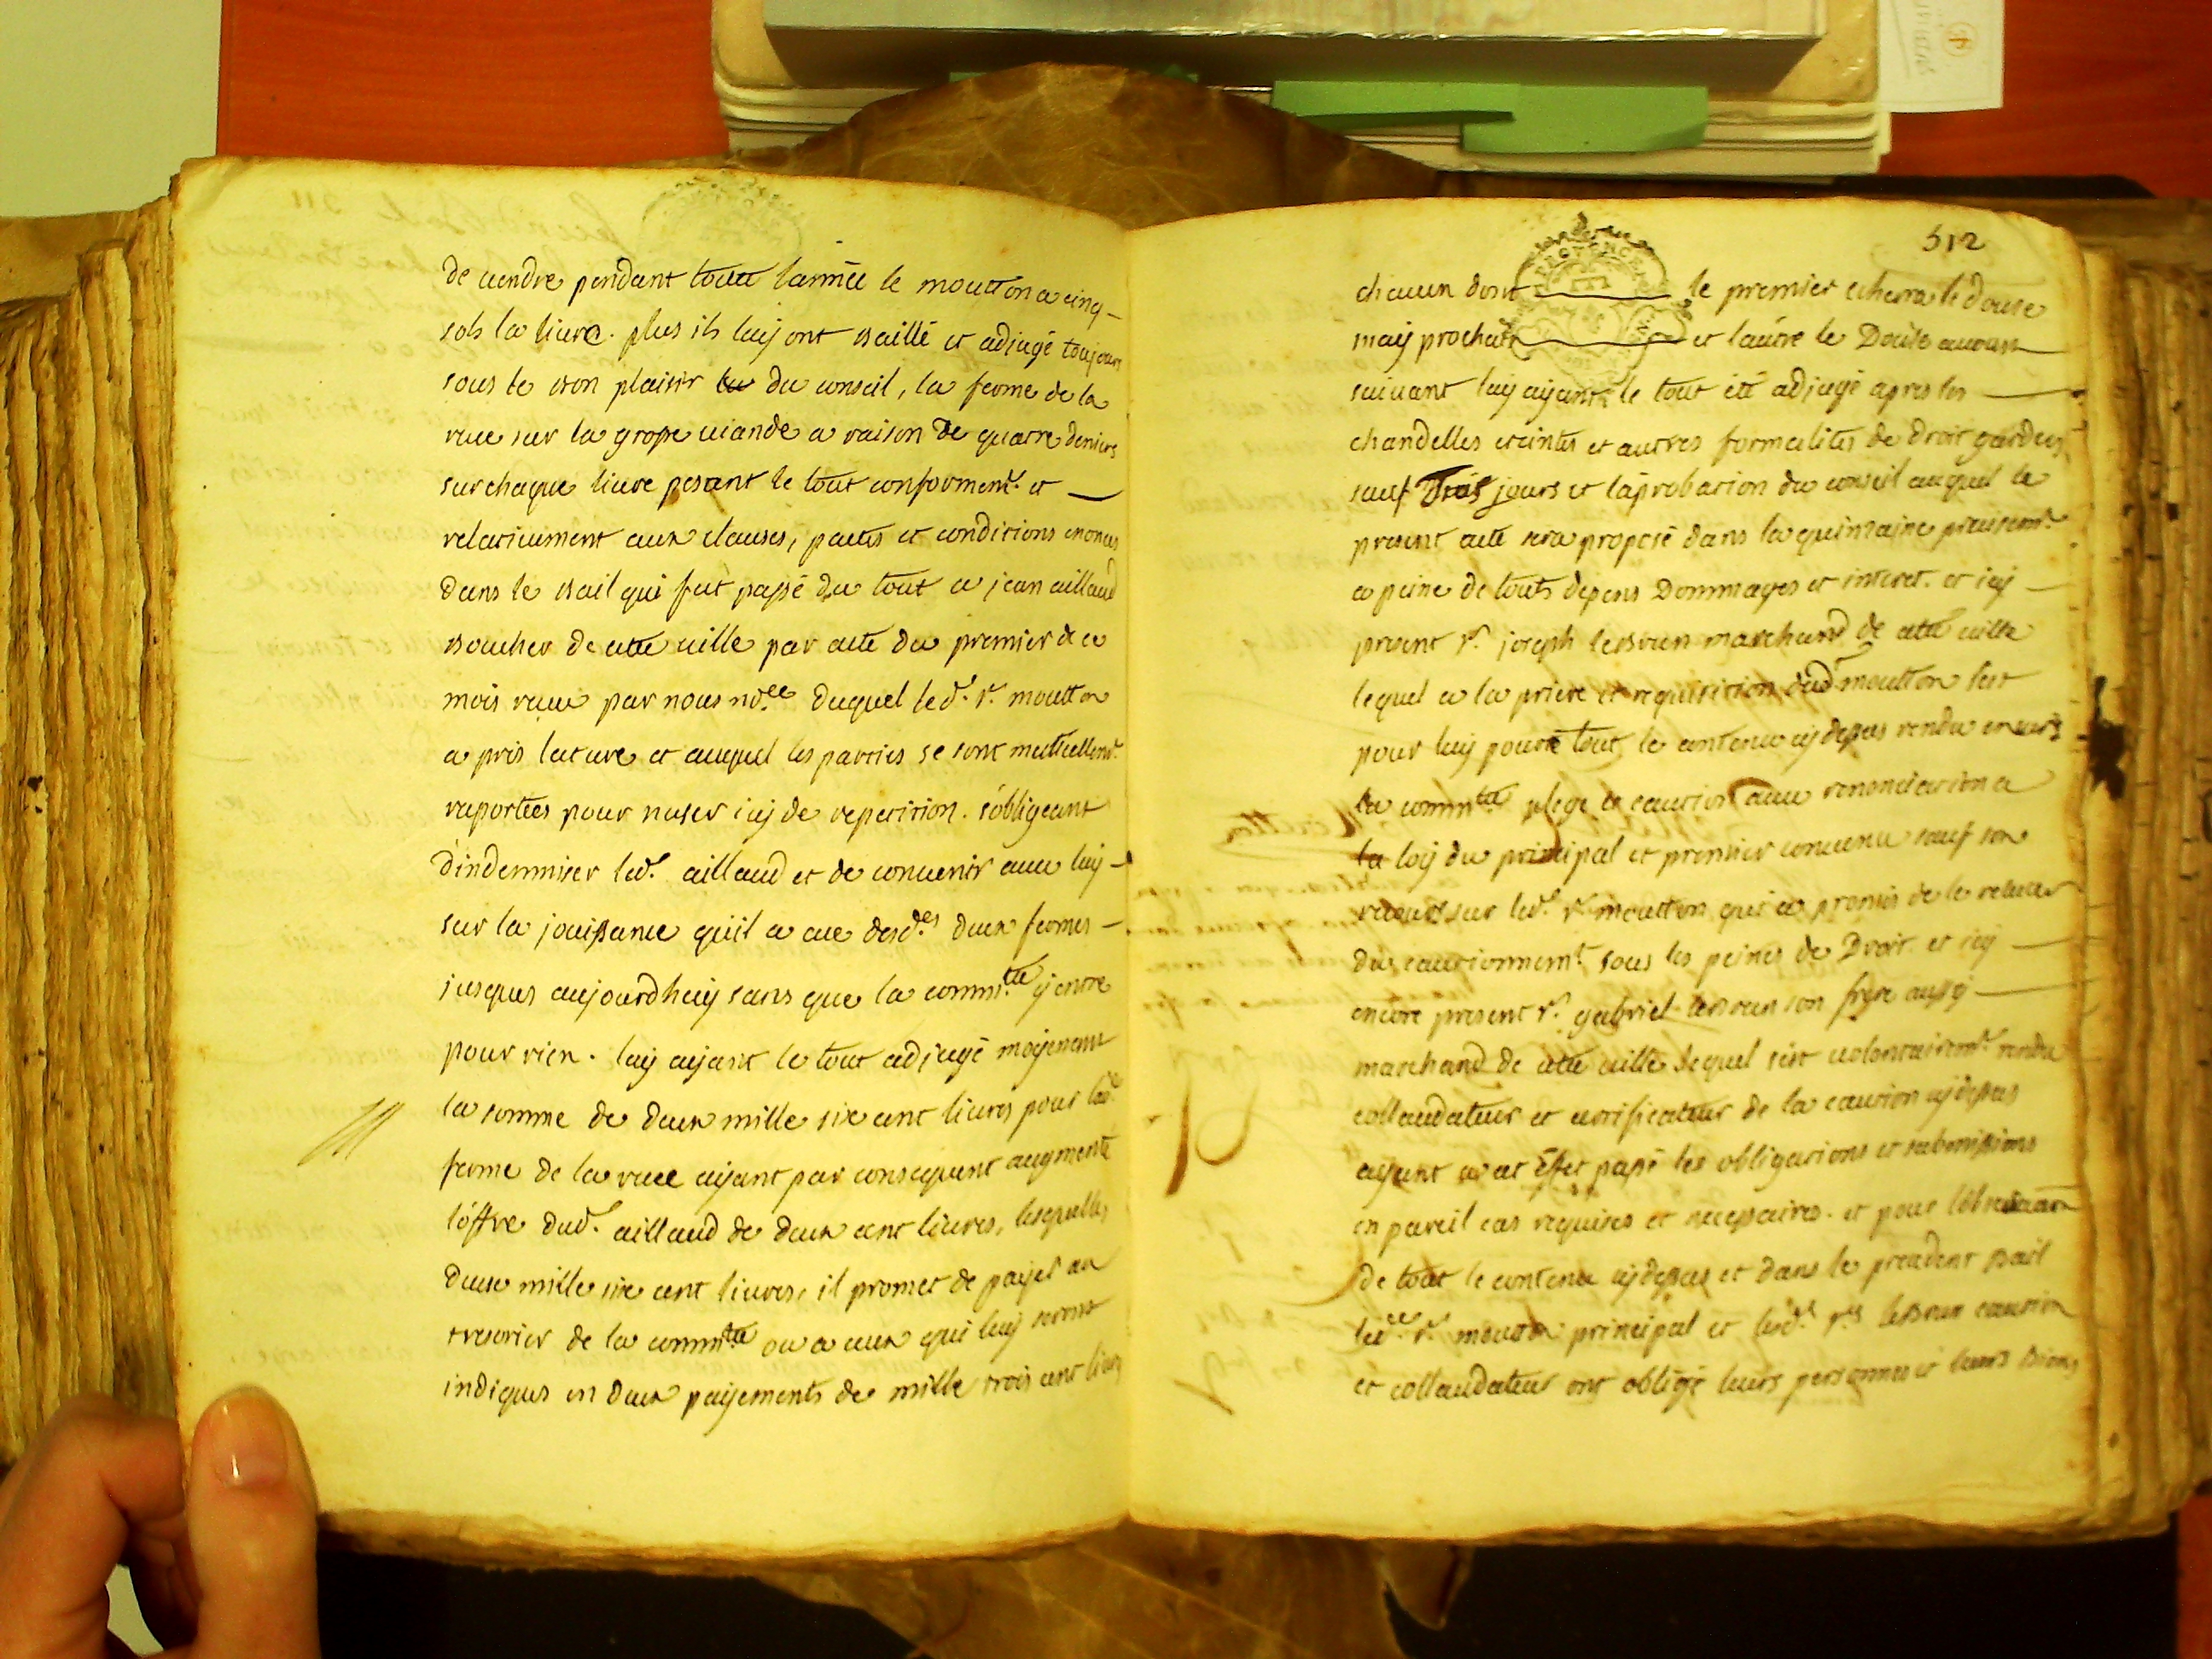 de vendre pendant toute l'année le moutton a cinq
sols la livre. plus ils luy ont baillé et adjugé toujours
sous le bon plaisir du conseil, la ferme de la
rue sur la grosse viande a raison de quatre deniers
sur chaque livre pesant le tout conforment. et
relativement aux clauses, pactes et conditions enoncés
dans le bail qui fut passé du tout a jean aillaud
boucher de cette ville par acte du premier de ce
mois receu par nous no.re duquel led. sr. moutton
a pris lecture et auquel les parties se sont mutuellemt.
raportées pour n'user icy de repetition. s'obligeant
d'indemniser led. aillaud et de convenir avec luy
sur la jouissance qu'il a eue desd.es deux fermes
jusques aujourdhuy sans que la comm.té y entre
pour rien. luy ayant le tout adjugé moyenant
la somme de deux mille six cent livres pour lad.e
ferme de la rue ayant par consequent augmenté
l'offre dud. aillaud de deux cent livres, lesquelles
deux mille six cent livres, il promet de payer au
tresorier de la comm.té ou a ceux qui luy seront
indiqués en deux payements de mille trois cent livres
512
PROVENCE
chacun dont le premier echerra le douse
may prochain et l'autre le douse aoust
suivant luy ayant le tout été adjugé apres les
chandelles eteintes et autres formalités de droit gardées
sauf trois jours et l'aprobation du conseil auquel le
present acte sera proposé dans la quinzaine precisemt.
a peine de touts depens dommages et interet. et icy
present sr. joseph lebrun marchand de cette ville
lequel a la priere et requisition dud. moutton s'est
pour luy pour tout le contenu cy dessus rendu envers
la comm.té plege et caution avec renonciation a
la loy du principal et premier convenu sauf son
recours sur led. sr. moutton qui a promis de le relever
du cautionnemt. sous les peines de droit. et icy
encore present sr. gabriel lebrun son frere aussy
marchand de cette ville lequel s'est volontairemt. rendu
collaudateur et certificateur de la caution cy dessus
ayant a cet effet passé les obligations et submissions
en pareil cas requises et necessaires. et pour l'observation
de tout le contenu cy dessus et dans le precedent bail
led. sr. moutton principal et lesd. srs. lebrun caution
et collaudateur ont obligé leurs personnes et leurs biens